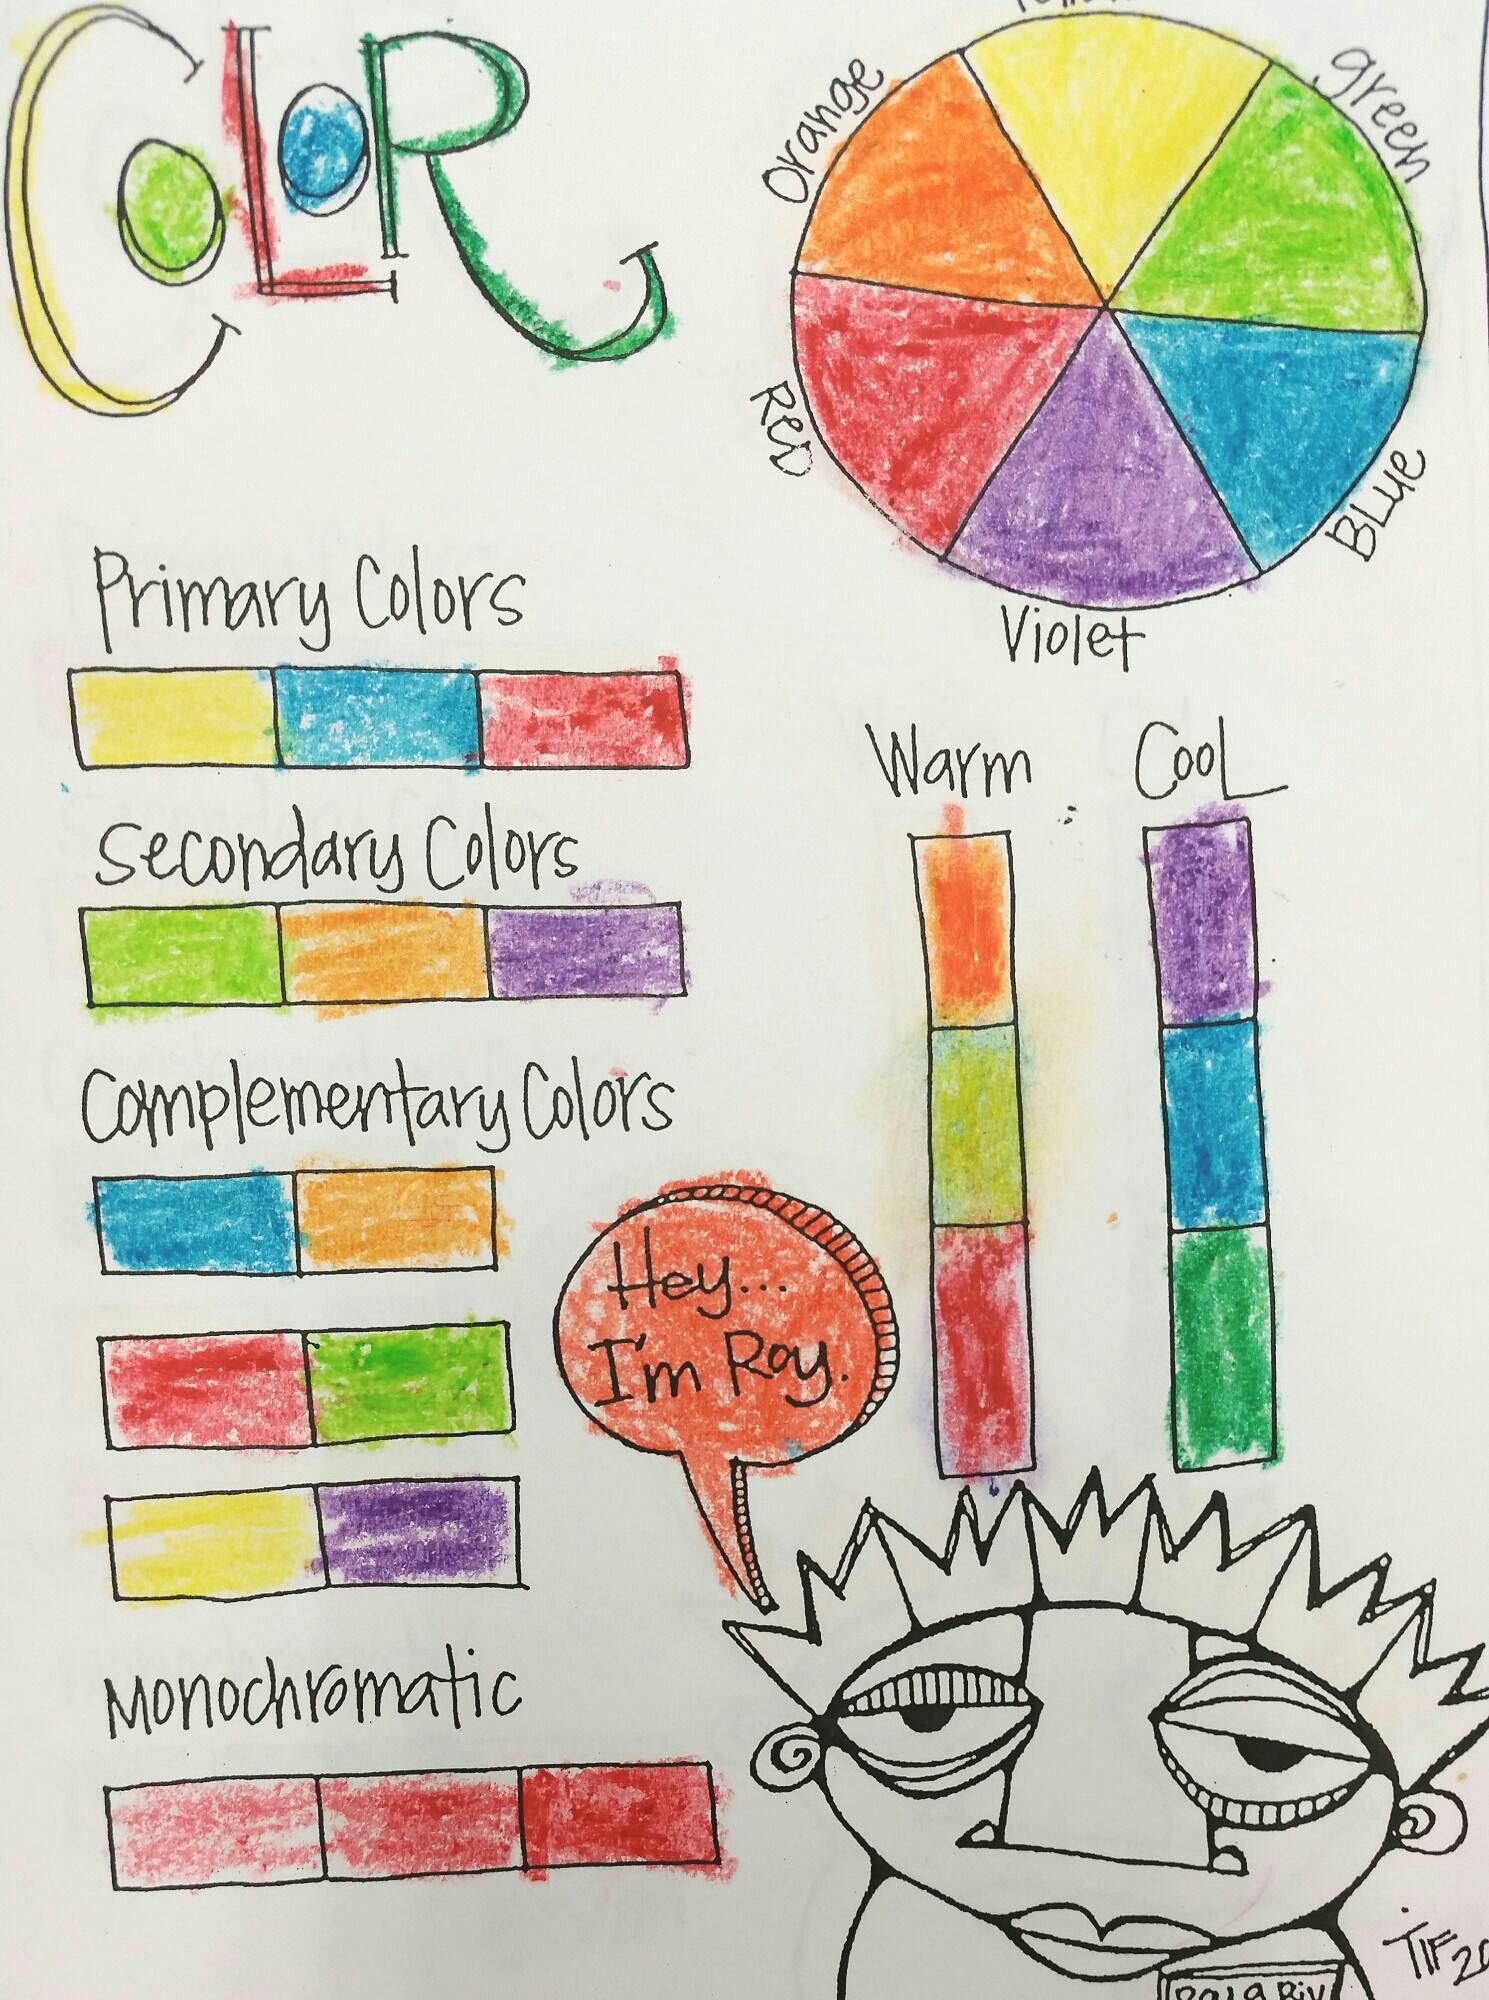 COLOR
Orange
green
RED
BLUe
Violet
Primary Colors
Secondary Colors
Complementary Colors
Monochromatic
Warm
CooL
Hey...
I'm Roy.
TIF20